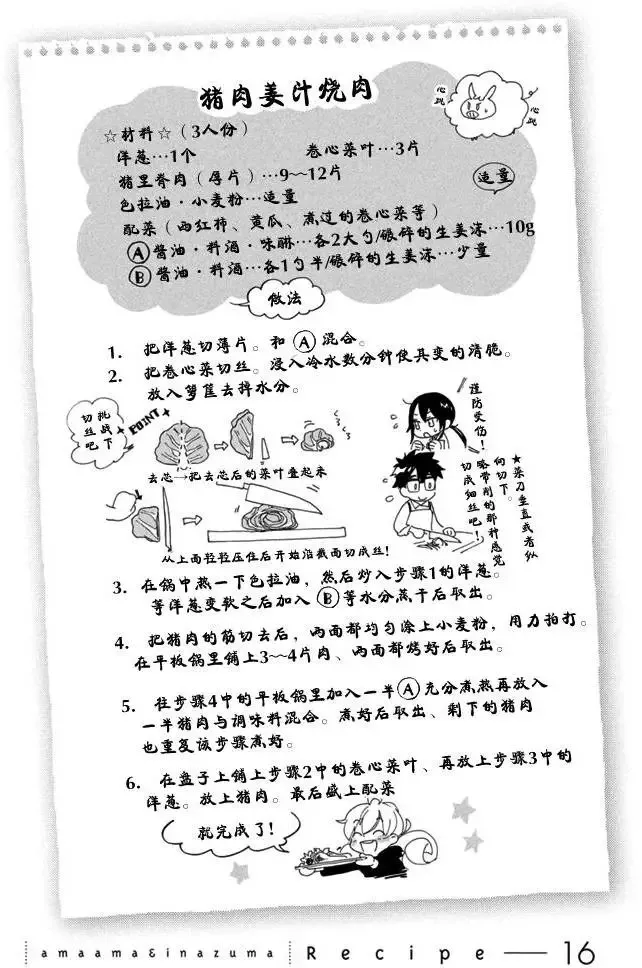 猪肉姜汁烧肉
心跳
心跳
☆材料☆（3人份）
洋葱…1个 卷心菜叶…3片
猪里脊肉（厚片）…9~12片
适量
色拉油·小麦粉…适量
配菜（西红柿、黄瓜、煮过的卷心菜等）
Ⓐ酱油·料酒·味醂…各2大勺/碾碎的生姜沫…10g
Ⓑ酱油·料酒…各1勺半/碾碎的生姜沫…少量
做法
1. 把洋葱切薄片。和Ⓐ混合。
2. 把卷心菜切丝。浸入冷水数分钟使其变的清脆。
放入箩筐去掉水分。
挑战一下
切丝吧
POINT
谨防受伤！
去芯→把去芯后的菜叶叠起来
★菜刀垂直或者纵
向切下。
略带削的那种感觉
切成细丝吧！
从上面轻轻压住后开始沿截面切成丝！
3. 在锅中热一下色拉油，然后炒入步骤1的洋葱。
等洋葱变软之后加入Ⓑ等水分蒸干后取出。
4. 把猪肉的筋切去后，两面都均匀涂上小麦粉，用力拍打。
在平板锅里铺上3~4片肉、两面都烤好后取出。
5. 往步骤4中的平板锅里加入一半Ⓐ充分煮热再放入
一半猪肉与调味料混合。煮好后取出、剩下的猪肉
也重复该步骤煮好。
6. 在盘子上铺上步骤2中的卷心菜叶、再放上步骤3中的
洋葱。放上猪肉。最后盛上配菜
就完成了！
amaama&inazuma Recipe — 16